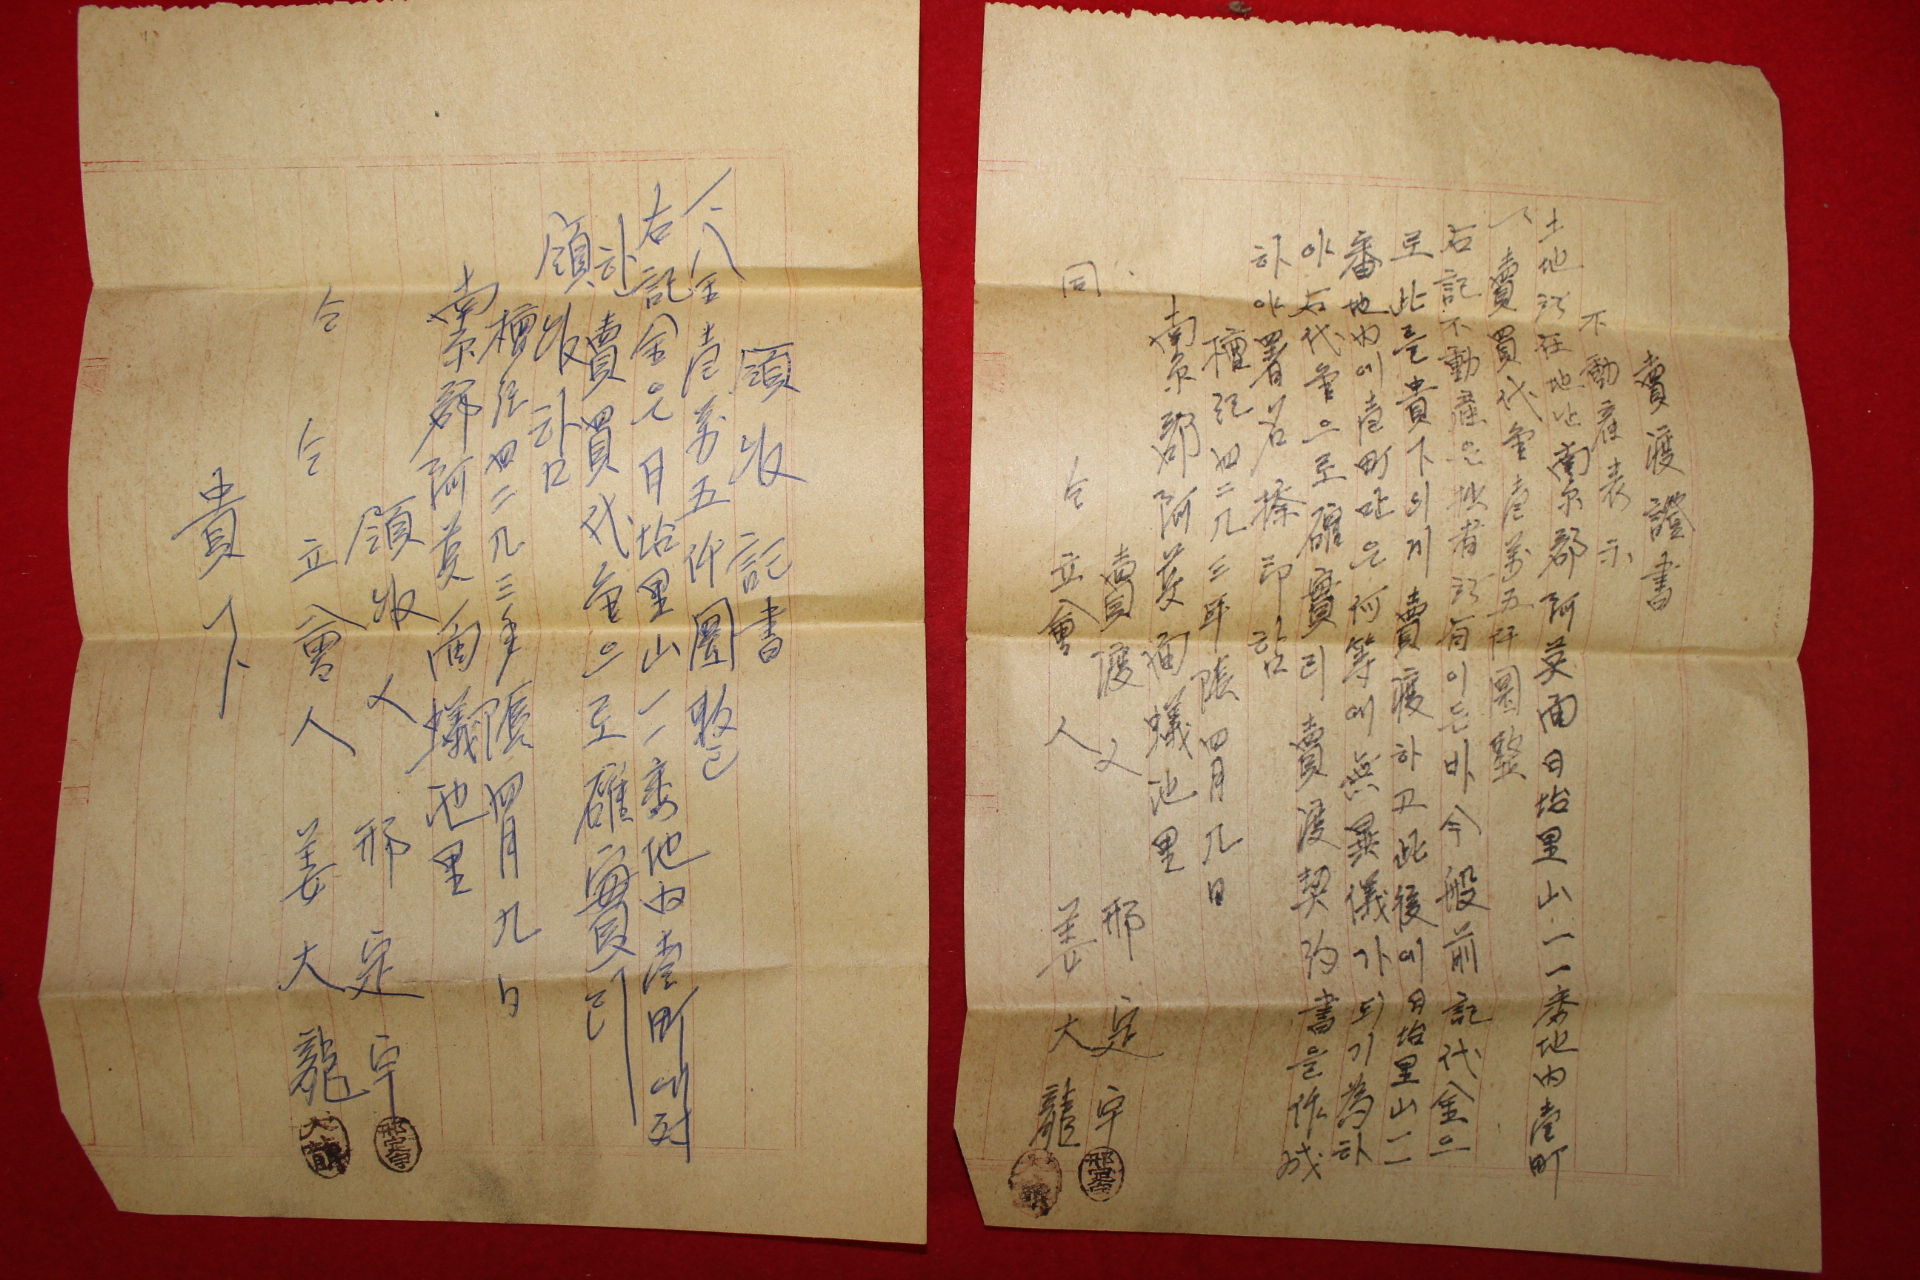 賣渡證書
不動産表示
土地所在地는 南原郡阿英面日坮里山一一番地內壹町
一、賣買代金壹萬五仟圜整
右記不動産은 拙者所有이든바 今般前記代金으
로 此를 貴下의게 賣渡하고 此後에 日坮里山一一
番地內에 壹町만은 何等에 無異儀가되기 爲하
야 右代金으로 確實히 賣渡契約書을 作成
하야 署名捺印함
檀紀四二九三年陰四月九日
南原郡阿英面蟻池里
賣渡人 邢定宇
同 仝 立會人 姜大龍
邢定宇
領收記書
一、金壹萬五仟圜整
右記金은 日坮里山一一番地內壹町에 対
한 賣買代金으로 確實히
領收함
檀紀四二九三年陰四月九日
南原郡阿英面蟻池里
仝 領收人 邢定宇
仝 立會人 姜大龍
貴下
邢定宇
大龍